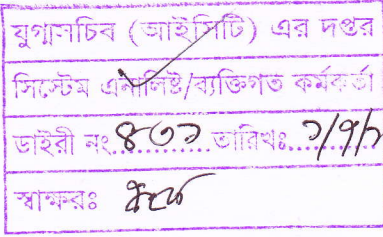 যুগ্মসচিব (আইসিটি) এর দপ্তর
সিস্টেম এনালিষ্ট/ব্যক্তিগত কর্মকর্তা
ডাইরী নং..৪৩১..........তারিখঃ...১/৭/১
স্বাক্ষরঃ